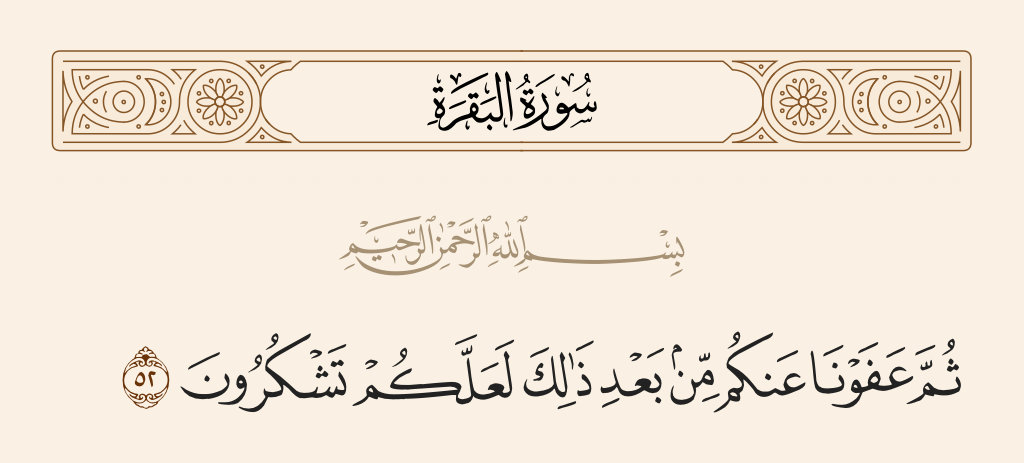 سُورَةُ البَقَرَةِ
بِسْمِ ٱللَّهِ ٱلرَّحْمَٰنِ ٱلرَّحِيمِ
ثُمَّ عَفَوْنَا عَنكُم مِّنۢ بَعْدِ ذَٰلِكَ لَعَلَّكُمْ تَشْكُرُونَ ٥٢